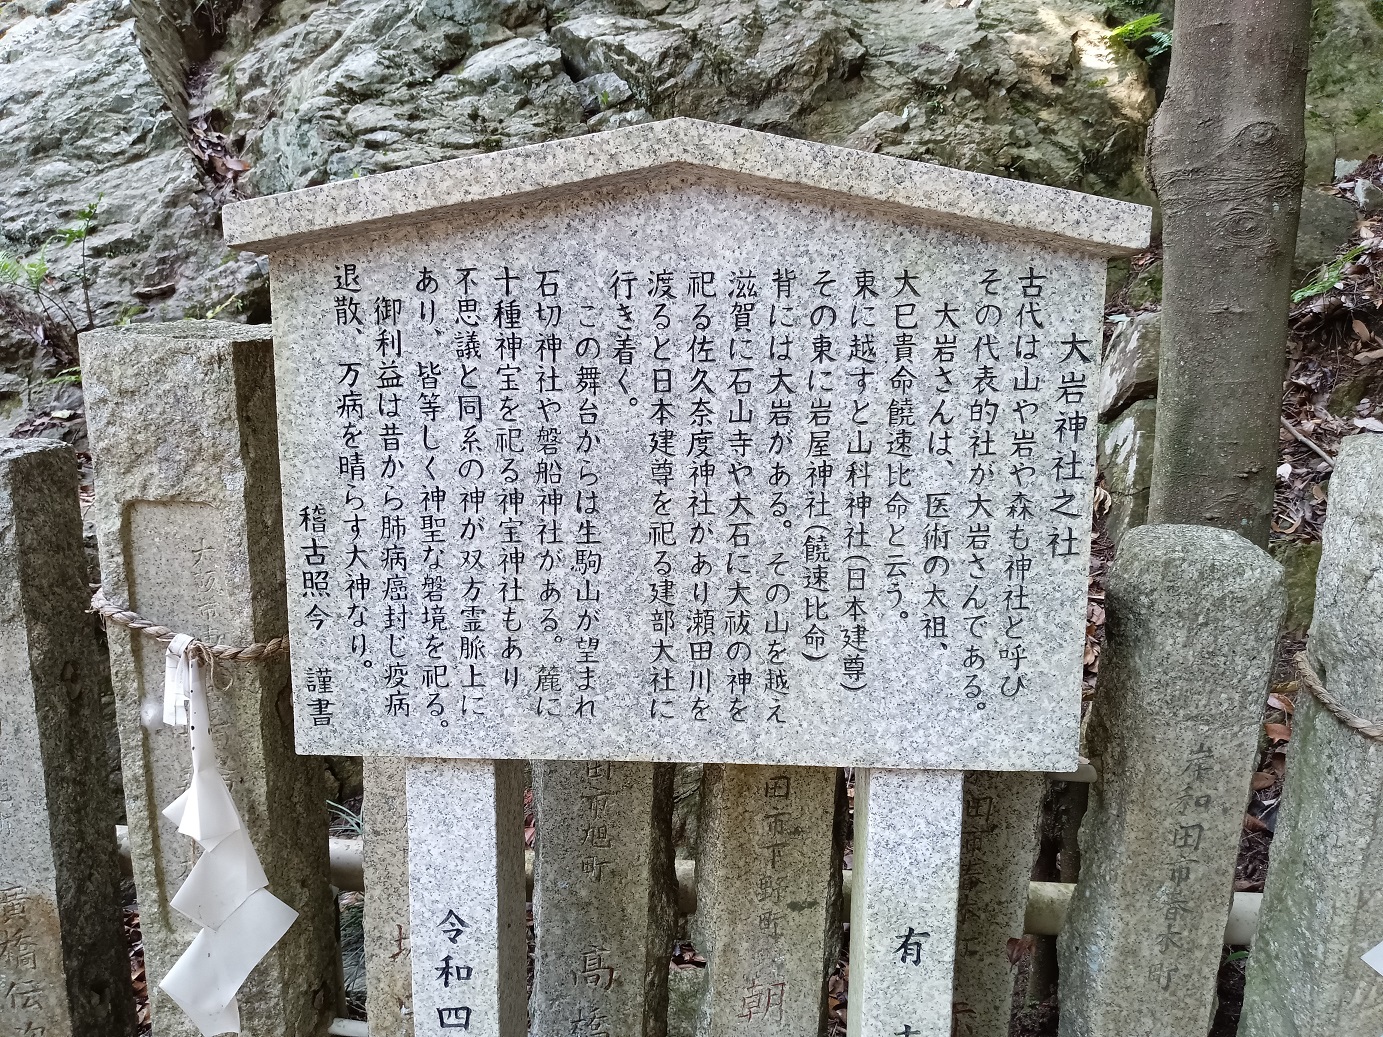 大岩神社之社
古代は山や岩や森も神社と呼び
その代表的社が大岩さんである。
大岩さんは、医術の太祖、
大巳貴命饒速比命と云う。
東に越すと山科神社(日本建尊)
その東に岩屋神社(饒速比命)
背には大岩がある。その山を越え
滋賀に石山寺や大石に大祓の神を
祀る佐久奈度神社があり瀬田川を
渡ると日本建尊を祀る建部大社に
行き着く。
この舞台からは生駒山が望まれ
石切神社や磐船神社がある。麓に
十種神宝を祀る神宝神社もあり
不思議と同系の神が双方霊脈上に
あり、皆等しく神聖な磐境を祀る。
御利益は昔から肺病癌封じ疫病
退散、万病を晴らす大神なり。
稽古照今 謹書
岸和田市春木町
田市春木
有
田市下野町 朝
田市旭町 高橋
令和四